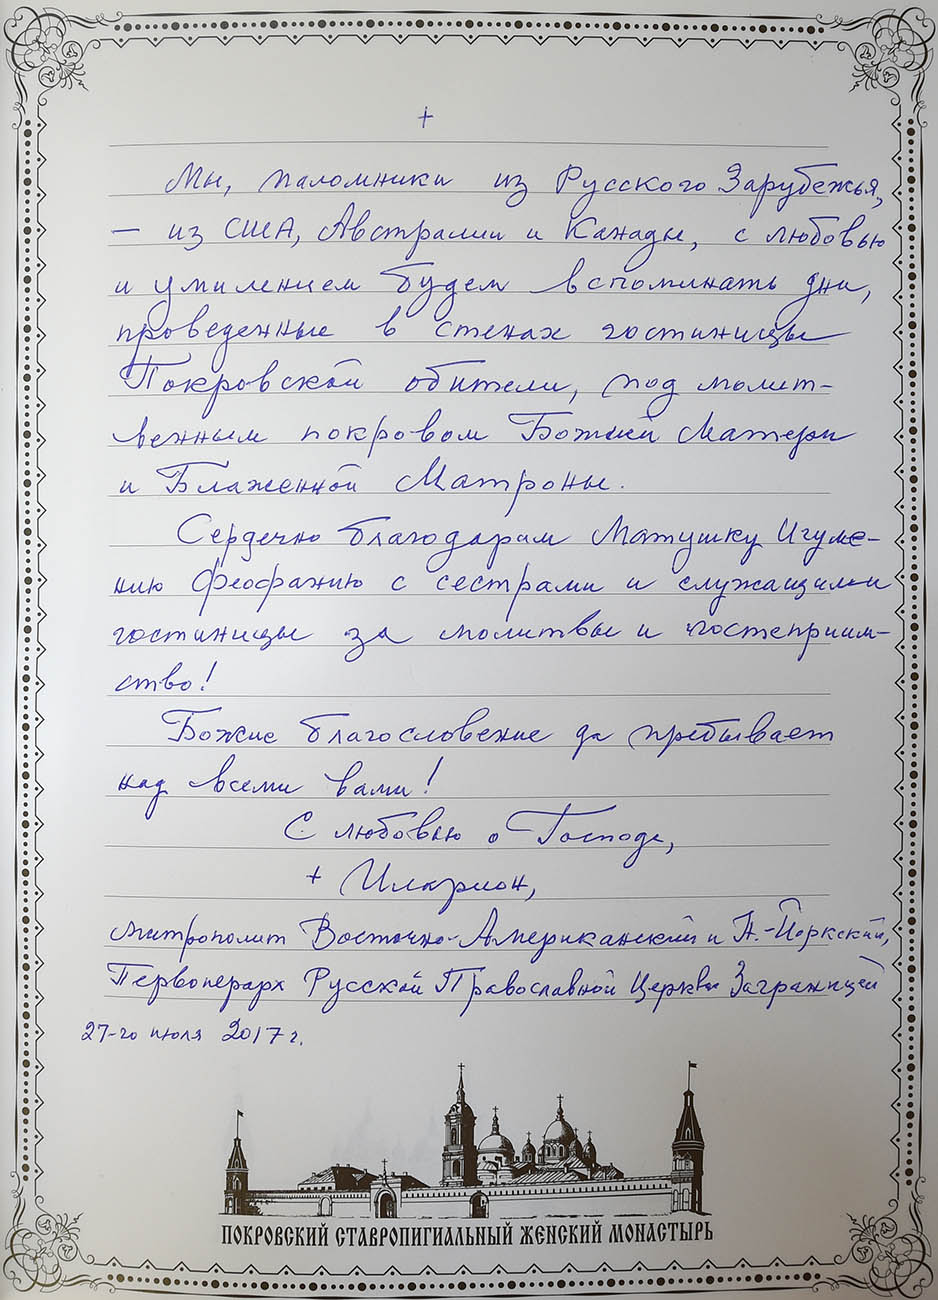 +
Мы, паломники из Русского Зарубежья,
— из США, Австралии и Канады, с любовью
и умилением будем вспоминать дни,
проведенные в стенах гостиницы
Покровской обители, под молит-
венным покровом Божией Матери
и Блаженной Матроны.
Сердечно благодарим Матушку Игуме-
нию Феофанию с сестрами и служащими
гостиницы за молитвы и гостеприим-
ство!
Божие благословение да пребывает
над всеми вами!
С любовью о Господе,
+ Иларион,
митрополит Восточно-Американский и Н.-Йоркский,
Первоиерарх Русской Православной Церкви Заграницей
27-го июля 2017 г.
ПОКРОВСКИЙ СТАВРОПИГИАЛЬНЫЙ ЖЕНСКИЙ МОНАСТЫРЬ